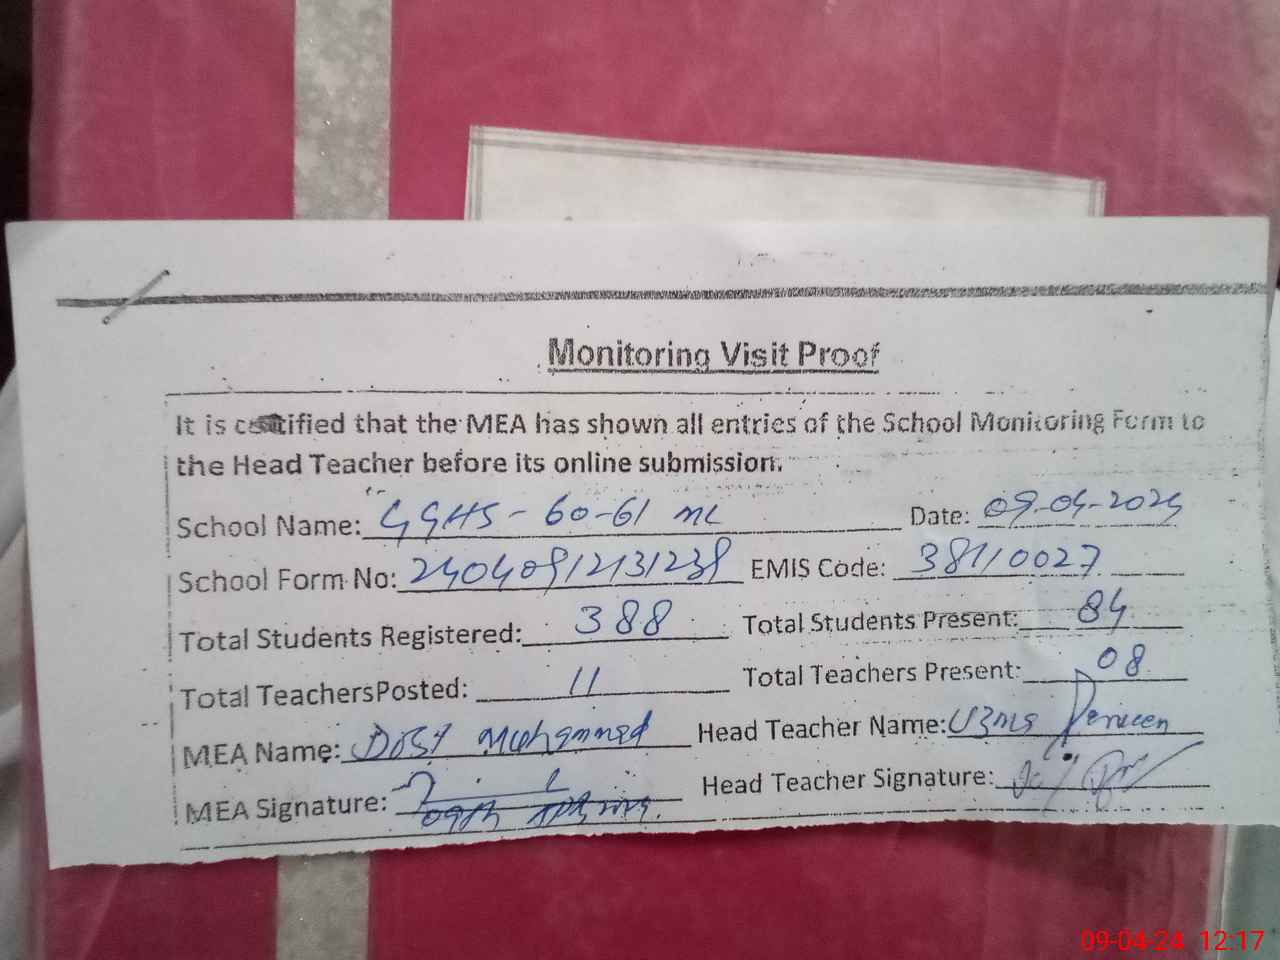 Monitoring Visit Proof
It is certified that the MEA has shown all entries of the School Monitoring Form to
the Head Teacher before its online submission.
School Name: GGHS - 60-61 ML Date: 09-04-2024
School Form No: 24040912131238 EMIS Code: 38110027
Total Students Registered: 388 Total Students Present: 84
Total Teachers Posted: 11 Total Teachers Present: 08
MEA Name: Dost Muhammad Head Teacher Name: Uzma Parveen
MEA Signature: Head Teacher Signature:
09-04-24 12:17